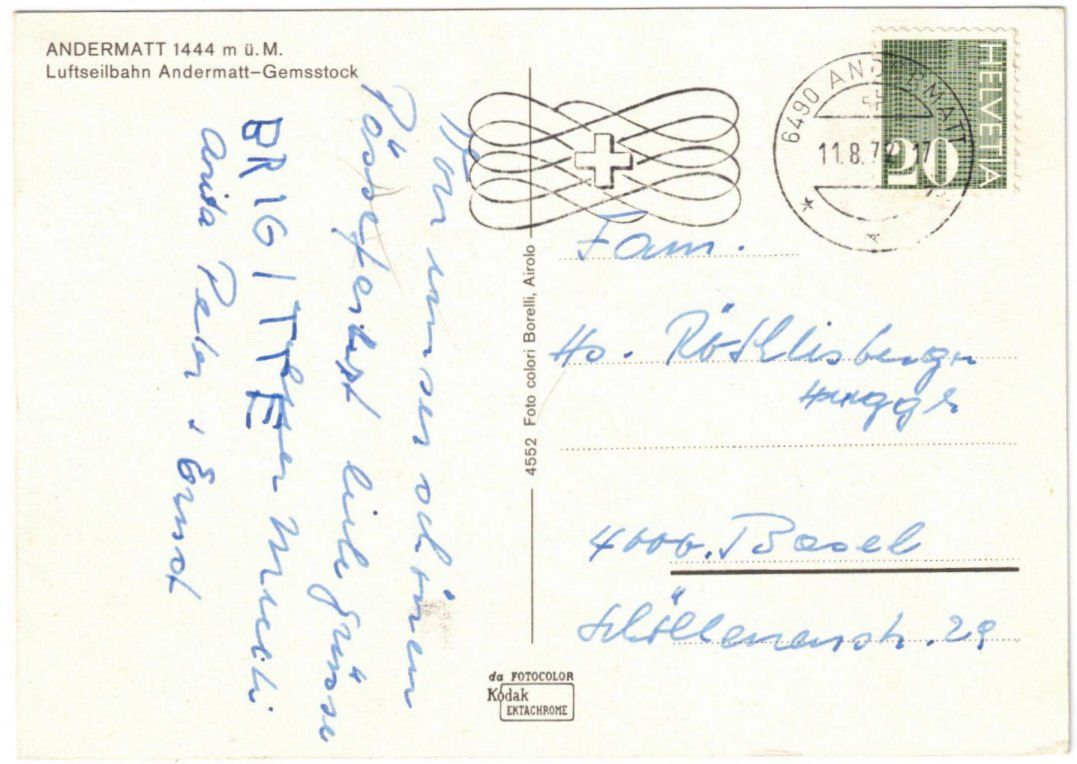 ANDERMATT 1444 m ü. M.
Luftseilbahn Andermatt–Gemsstock
Von unser schönen
Pässefarht liebe grüsse
BRIGITTE Mueti
Anita Peter & Ernst
4552 Foto colori Borelli, Airolo
da FOTOCOLOR
Kodak
EKTACHROME
6490 ANDERMATT
11.8.72 17
HELVETIA
20
Fam.
Hs. Röthlisberger
Hugg
4000. Basel
Schöllenenstr. 29